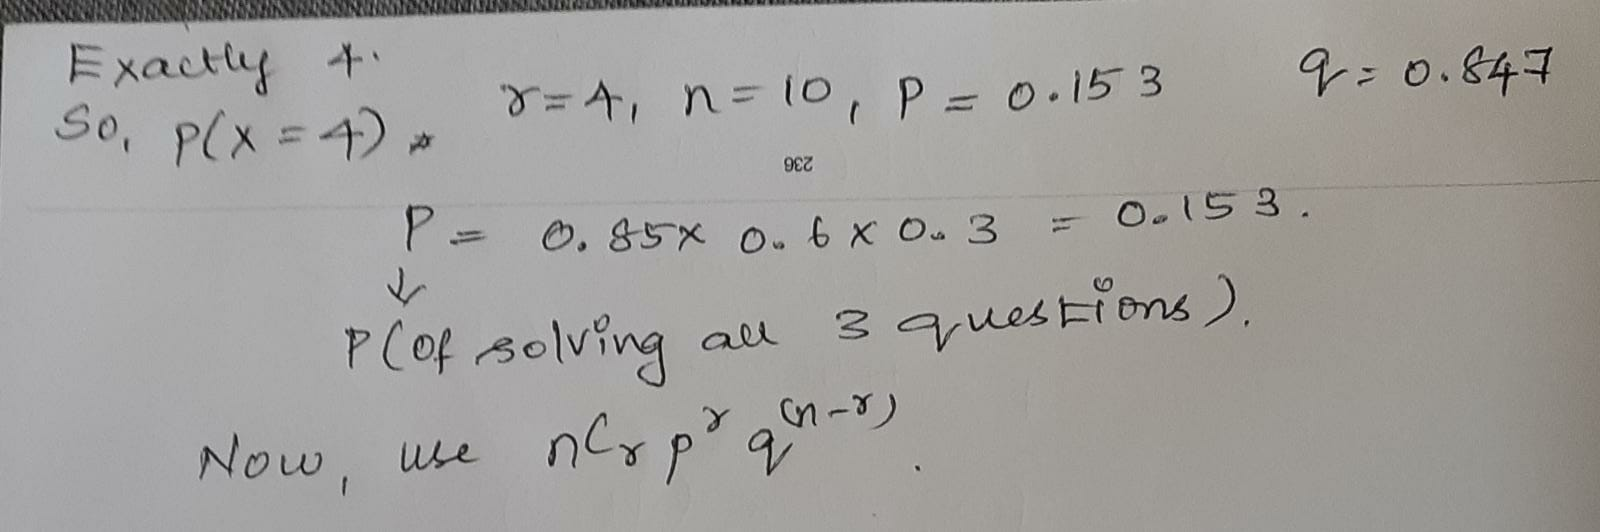 Exactly 4.
So, P(X = 4).
r=4, n=10, P=0.153 q=0.847
236
P = 0.85x 0.6 x 0.3 = 0.153.
↓
P(of solving all 3 questions).
Now, use nCr p^r q^(n-r).